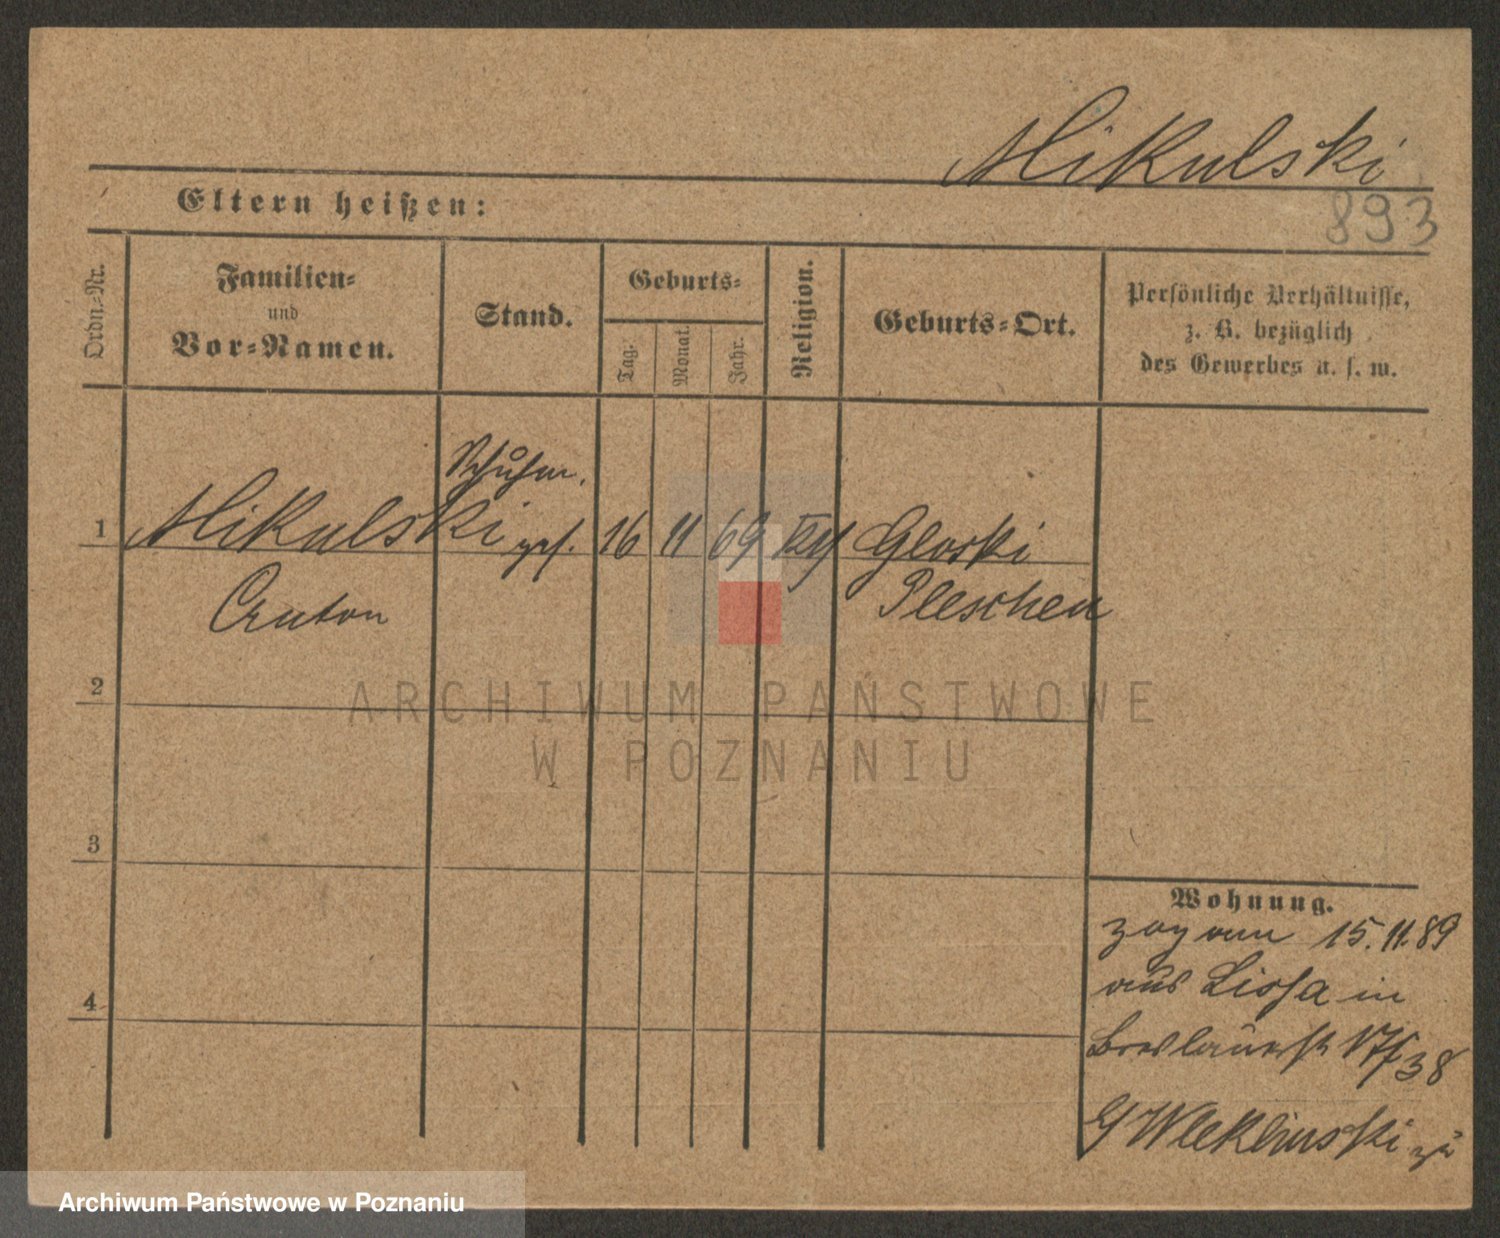 Mikulski
893
Eltern heißen:
Ordn.=Nr.
Familien=
und
Vor=Namen.
Stand.
Geburts=
Tag.
Monat.
Jahr.
Religion.
Geburts=Ort.
Persönliche Verhältnisse,
z. B. bezüglich
des Gewerbes u. s. w.
Schuhm.
1 Mikulski ges. 16 11 69 Gloski
Anton Pleschen
2
3
4
Wohnung.
zog am 15.11.89
aus Lissa in
Breslauerst 38
zu
ARCHIWUM PAŃSTWOWE
W POZNANIU
Archiwum Państwowe w Poznaniu